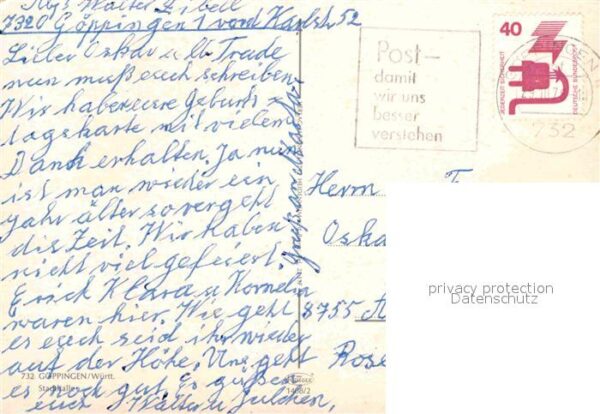 Abs Walter Zibell
7320 Göppingen 1 vord Karlstr 52
Lieber Oskar u lb. Trude
nun muß euch schreiben.
Wir haben eure Geburts =
tagskarte mit vielen
Dank erhalten. Ja nun
ist man wieder ein
Jahr älter so vergeht
die Zeit. Wir haben
nicht viel gefeiert.
Erich Klara u Kornelia
waren hier. Wie geht
es euch seid ihr wieder
auf der Höhe. Uns geht
es noch gut. Es grüßen
euch Walter u Julchen,
Gruß an alle
732 GÖPPINGEN/Württ.
Stadthalle
1468/2
Post-
damit
wir uns
besser
verstehen
40
JEDERZEIT SICHERHEIT
DEUTSCHE BUNDESPOST
732
Herrn
Oska
8755
Rose
privacy protection
Datenschutz